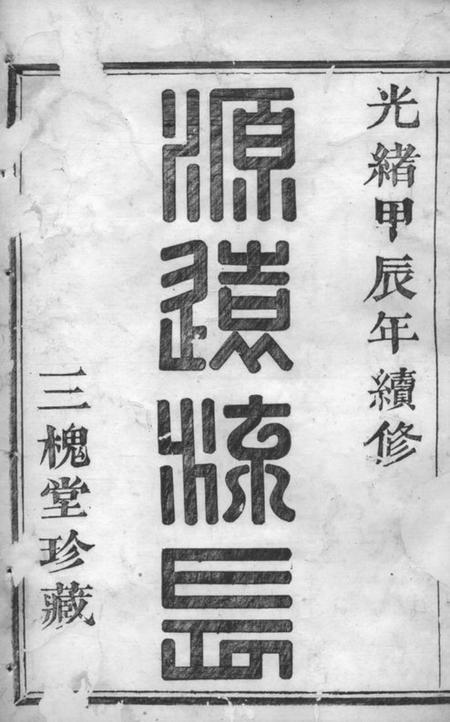 光緒甲辰年續修
源遠流長
三槐堂珍藏